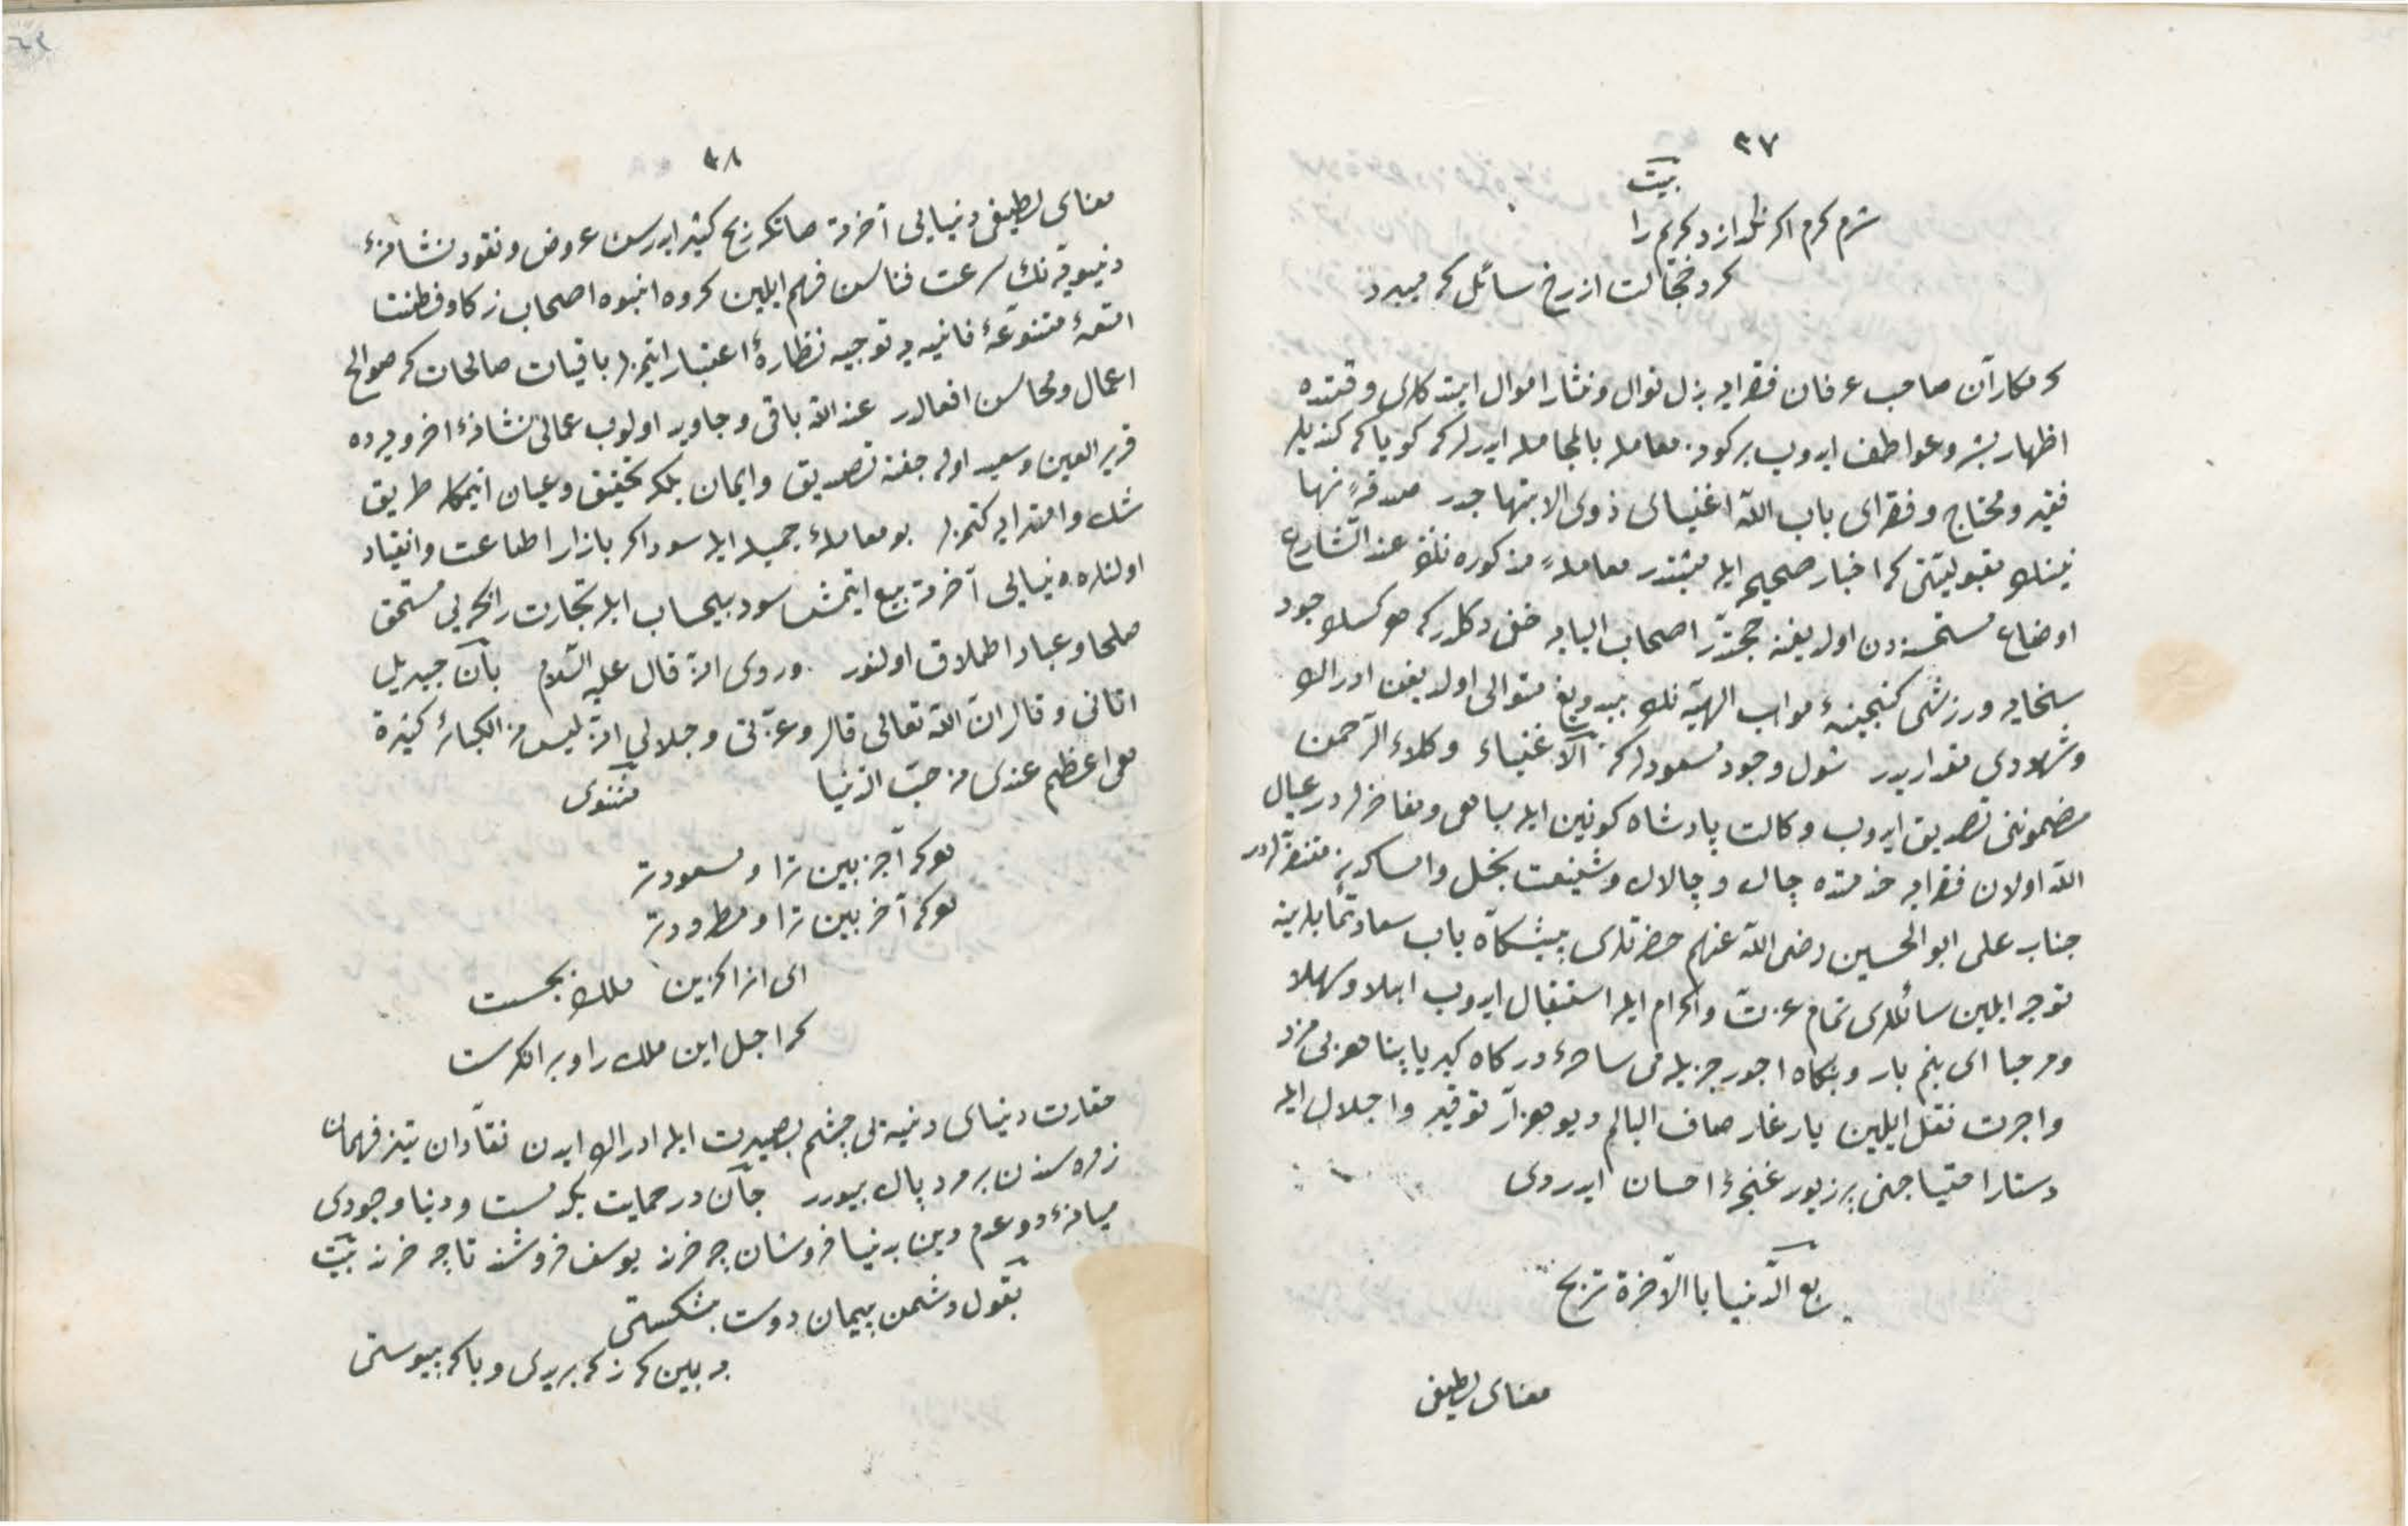 ٣٧
بيت
شرم كرم اكر نكدازد كريم را
كرد خجالت از رخ سائل كه ميبرد
كرمكاران صاحب عرفان فقرايه بذل نوال ونثار اموال ايتدكلرى وقتده
اظهار بشر وعواطف ايدوب بر كونه معامله بالمجامله ايدرلركه كويا كه كنديلر
فقير ومحتاج وفقراى باب الله اغنياى ذوى الابتهاجدر صدقهٔ تنها
نينك مقبوليتنى كه اخبار صحيحه ايله مثبتدر معاملهٔ مذكوره نك عند الشارع
اوضاع مستحسنه دن اولديغنه حجتدر اصحاب البابه خفى دكلدركه هركسك جود
سخايه ورزشى كنجينهٔ مواهب الهيه نك بيدريغ متوالى اولديغن ادراك
وشهودى مقداريدر شول وجود مسعودلركه الاغنياء وكلاء الرحمن
مضموننى تصديق ايدوب وكالت پادشاه كونين ايله مباهى ومفاخرلردر عيال
الله اولان فقرايه خدمتده چاك وچالاك وشنيعت بخل وامساكدن متنفرلردر
جناب على ابو الحسين رضى الله عنهم حضرتلرى پيشكاه باب سعادتمآبلرينه
توجه ايلين سائللرى تمام عزت واكرام ايله استقبال ايدوب اهلا وسهلا
ومرحبا اى بنم بار وبنكاه اجور جزيله مى ساحهٔ دركاه كبريا پناهه بى مزد
واجرت نقل ايلين يار غار صاف البالم ديو هزار توقير واجلال ايله
دستار احتياجنى پر زيور غنچهٔ احسان ايدردى
بع الدنيا باالآخرة تربح
معناى لطيفى
٣٨
معناى لطيفى دنيايى آخرته صاتكه ربح كثير ايدرسن عروض ونقود نشانهٔ
دنيويه نك سرعت فناسن فهم ايلين كروه انبوه اصحاب زكا وفطنت
امتعهٔ متنوعهٔ فانيه يه توجيه نظارهٔ اعتبار ايتمزلر باقيات صالحات كه صوالح
اعمال ومحاسن افعالدر عند الله باقى وجاويد اولوب عمالى نشانهٔ اخرويه ده
قرير العين وسعيد اوله جغنه تصديق وايمان بلكه تحقيق وعيان ايتمكله طريق
شك وامترايه كتمزلر بو معاملهٔ جميله ايله سوداكر بازار اطاعت وانقياد
اولنلره دنيايى آخرته بيع ايتمش سود بيحساب ايله تجارت رابحه يى مستحق
صلحا وعباد اطلاق اولنور وروى انه قال عليه السلام بان جبريل
اتانى وقال ان الله تعالى قال وعزتى وجلالى انه ليس من الكبائر كبيرة
هى اعظم عندى من حب الدنيا مثنوى
هركه آخر بين ترا و مسعودتر
هركه آخر بين ترا و مطرودتر
اى ... ملك بجست
كه اجل اين ملك را ويرانكرست
حقارت دنياى دنيه يى چشم بصيرت ايله ادراك ايدن نقادان تيز فهمان
زمره سندن بر مرد پاك بيورر جان در حمايت يكدمست ودنيا وجودى
ميانهٔ دو عدم دين بدنيا فروشان چه خرند يوسف فروشند تا چه خرند بيت
بقول دشمن پيمان دوست بشكستى
ببين كه از كه بريدى وبا كه پيوستى